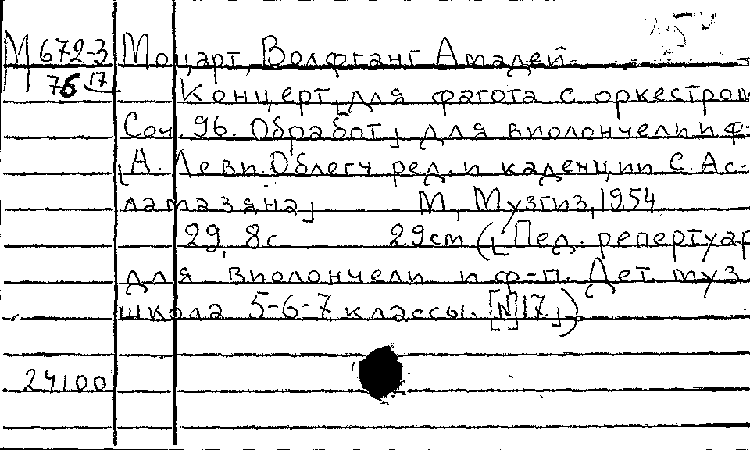 М 672-3 Моцарт, Вольфганг Амадей.
76 17 Концерт [для фагота с оркестром
Соч. 96. Обработ] для виолончели и ф-
[А. Леви. Облегч ред. и каденции С. Ас-
ламазяна] М, Музгиз, 1954
29, 8с 29см ([Пед. репертуар
для виолончели и ф-п. Дет муз
школа 5-6-7 классы. [N17])
24100